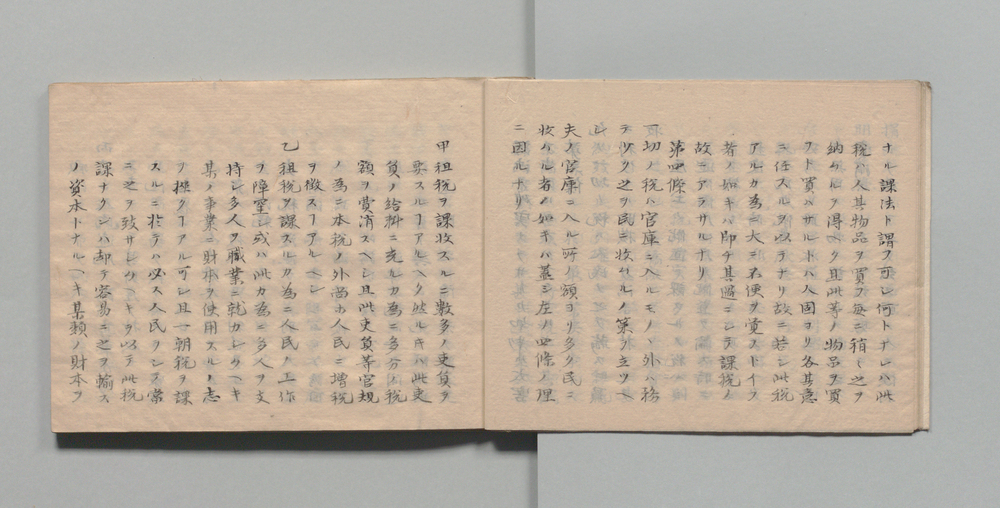 ナル課法ト謂フ可シ何トナレハ此
税ハ人其物品ヲ買フ毎ニ稍ミ之ヲ
納ムルヲ得ヘク且此等ノ物品ヲ買
フト買ハサルトハ人固ヨリ各其意
ニ任スルヲ以テナリ故ニ若シ此税
アルカ為ニ大ニ不便ヲ覚ストイフ
者ノ如キハ即チ其過ニシテ課税ノ
故ニアラサルナリ
第四條
一切ノ税ハ官庫ニ入ルモノヽ外ハ務
テ少ク之ヲ民ニ收ムルノ策ヲ立ツヘ
シ
夫ノ官庫ニ入ル所ノ額ヨリ多ク民ニ
收ムル者ノ如キハ蓋シ左ノ四條ノ理
ニ因ルナリ
甲 租税ヲ課收スルニ数多ノ吏員ヲ
要スルヿアルヘク然ルキハ此吏
員ノ給料ニ充ルカ為ニ多分ノ税
額ヲ費消スヘシ且此吏員等官規
ノ為ニ本税ノ外尚ホ人民ニ増税
ヲ徴スヿアルヘシ
乙 租税ヲ課スルカ為ニ人民ノ工作
ヲ障窒シ或ハ此カ為ニ多人ヲ支
持シ多人ヲ職業ニ就カシムヘキ
某ノ事業ニ財本ヲ使用スルノ志
ヲ挫クヿアル可シ且一朝税ヲ課
スルニ於テハ必ス人民ヲシテ常
ニ之ヲ致サシムヘキヲ以テ此税
課ナクンハ却テ容易ニ之ヲ輸ス
ノ資本トナルヘキ某類ノ財本ヲ